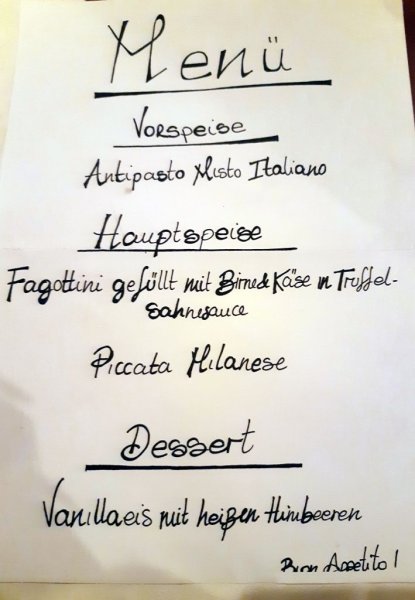 Menü
Vorspeise
Antipasto Misto Italiano
Hauptspeise
Fagottini gefüllt mit Birne & Käse in Trüffel-
Sahnesauce
Piccata Milanese
Dessert
Vanillaeis mit heißen Himbeeren
Buon Appetito!